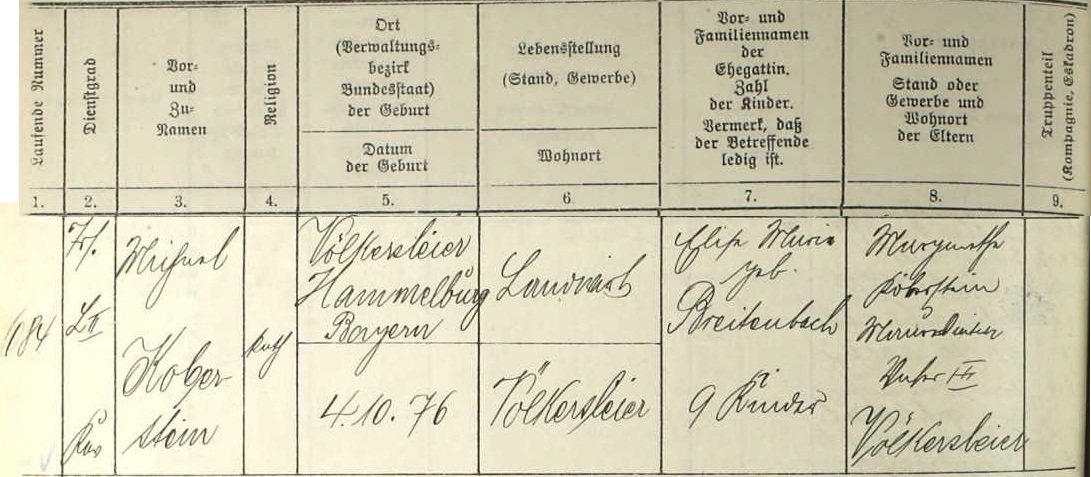 Laufende Nummer
Dienstgrad
Vor-
und
Zu-
Namen
Religion
Ort
(Verwaltungs-
bezirk
Bundesstaat)
der Geburt
Datum
der Geburt
Lebensstellung
(Stand, Gewerbe)
Wohnort
Vor- und
Familiennamen
der
Ehegattin.
Zahl
der Kinder.
Vermerk, daß
der Betreffende
ledig ist.
Vor- und
Familiennamen
Stand oder
Gewerbe und
Wohnort
der Eltern
Truppenteil
(Kompagnie, Eskadron)
1.
2.
3.
4.
5.
6.
7.
8.
9.
L II
Michael
Kober
stein
kath
Völkersleier
Hammelburg
Bayern
4.10.76
Landwirt
Völkersleier
Elisa Maria
geb.
Breitenbach
9 Kinder
Margaretha
Koberstein
Völkersleier